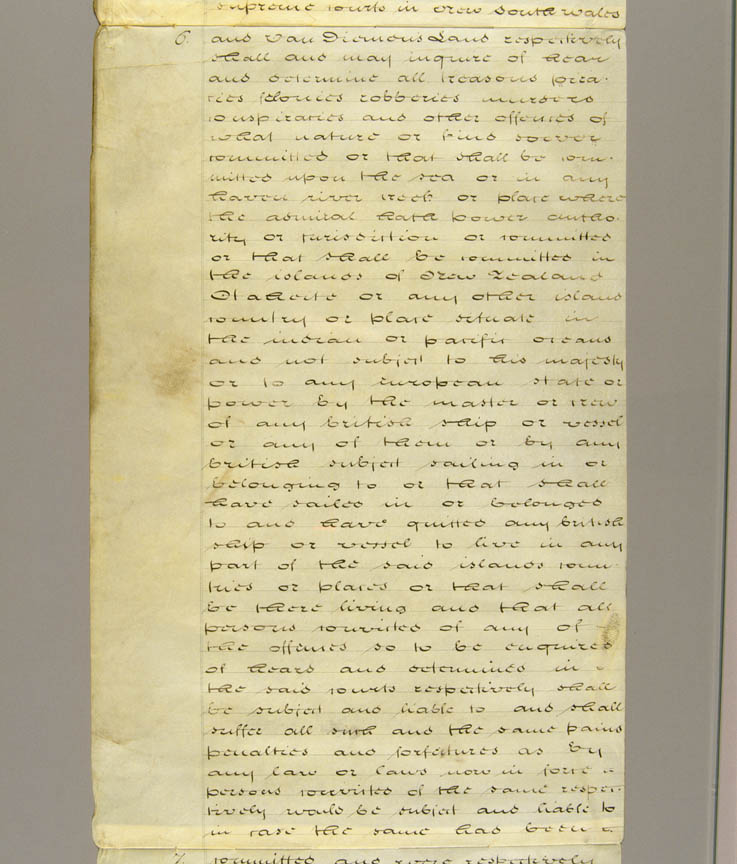 supreme courts in New South Wales
6. and Van Diemens Land respectively
shall and may inquire of hear
and determine all treasons pira-
cies felonies robberies murders
conspiracies and other offences of
what nature or kind soever
committed or that shall be com-
mitted upon the sea or in any
haven river creek or place where
the admiral hath power autho-
rity or jurisdiction or committed
or that shall be committed in
the islands of New Zealand
Otaheite or any other island
country or place situate in
the indian or pacific oceans
and not subject to his majesty
or to any european state or
power by the master or crew
of any british ship or vessel
or any of them or by any
british subject sailing in or
belonging to or that shall
have sailed in or belonged
to and have quitted any british
ship or vessel to live in any
part of the said islands coun-
tries or places or that shall
be there living and that all
persons convicted of any of
the offences so to be enquired
of heard and determined in
the said courts respectively shall
be subject and liable to and shall
suffer all such and the same pains
penalties and forfeitures as by
any law or laws now in force
persons convicted of the same respec-
tively would be subject and liable to
in case the same had been
7. committed and were respectively